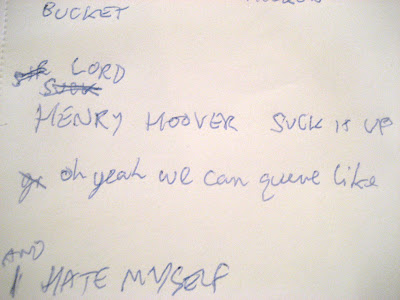 BUCKET
LORD
HENRY HOOVER SUCK IT UP
oh yeah we can queue like
AND
I HATE MYSELF